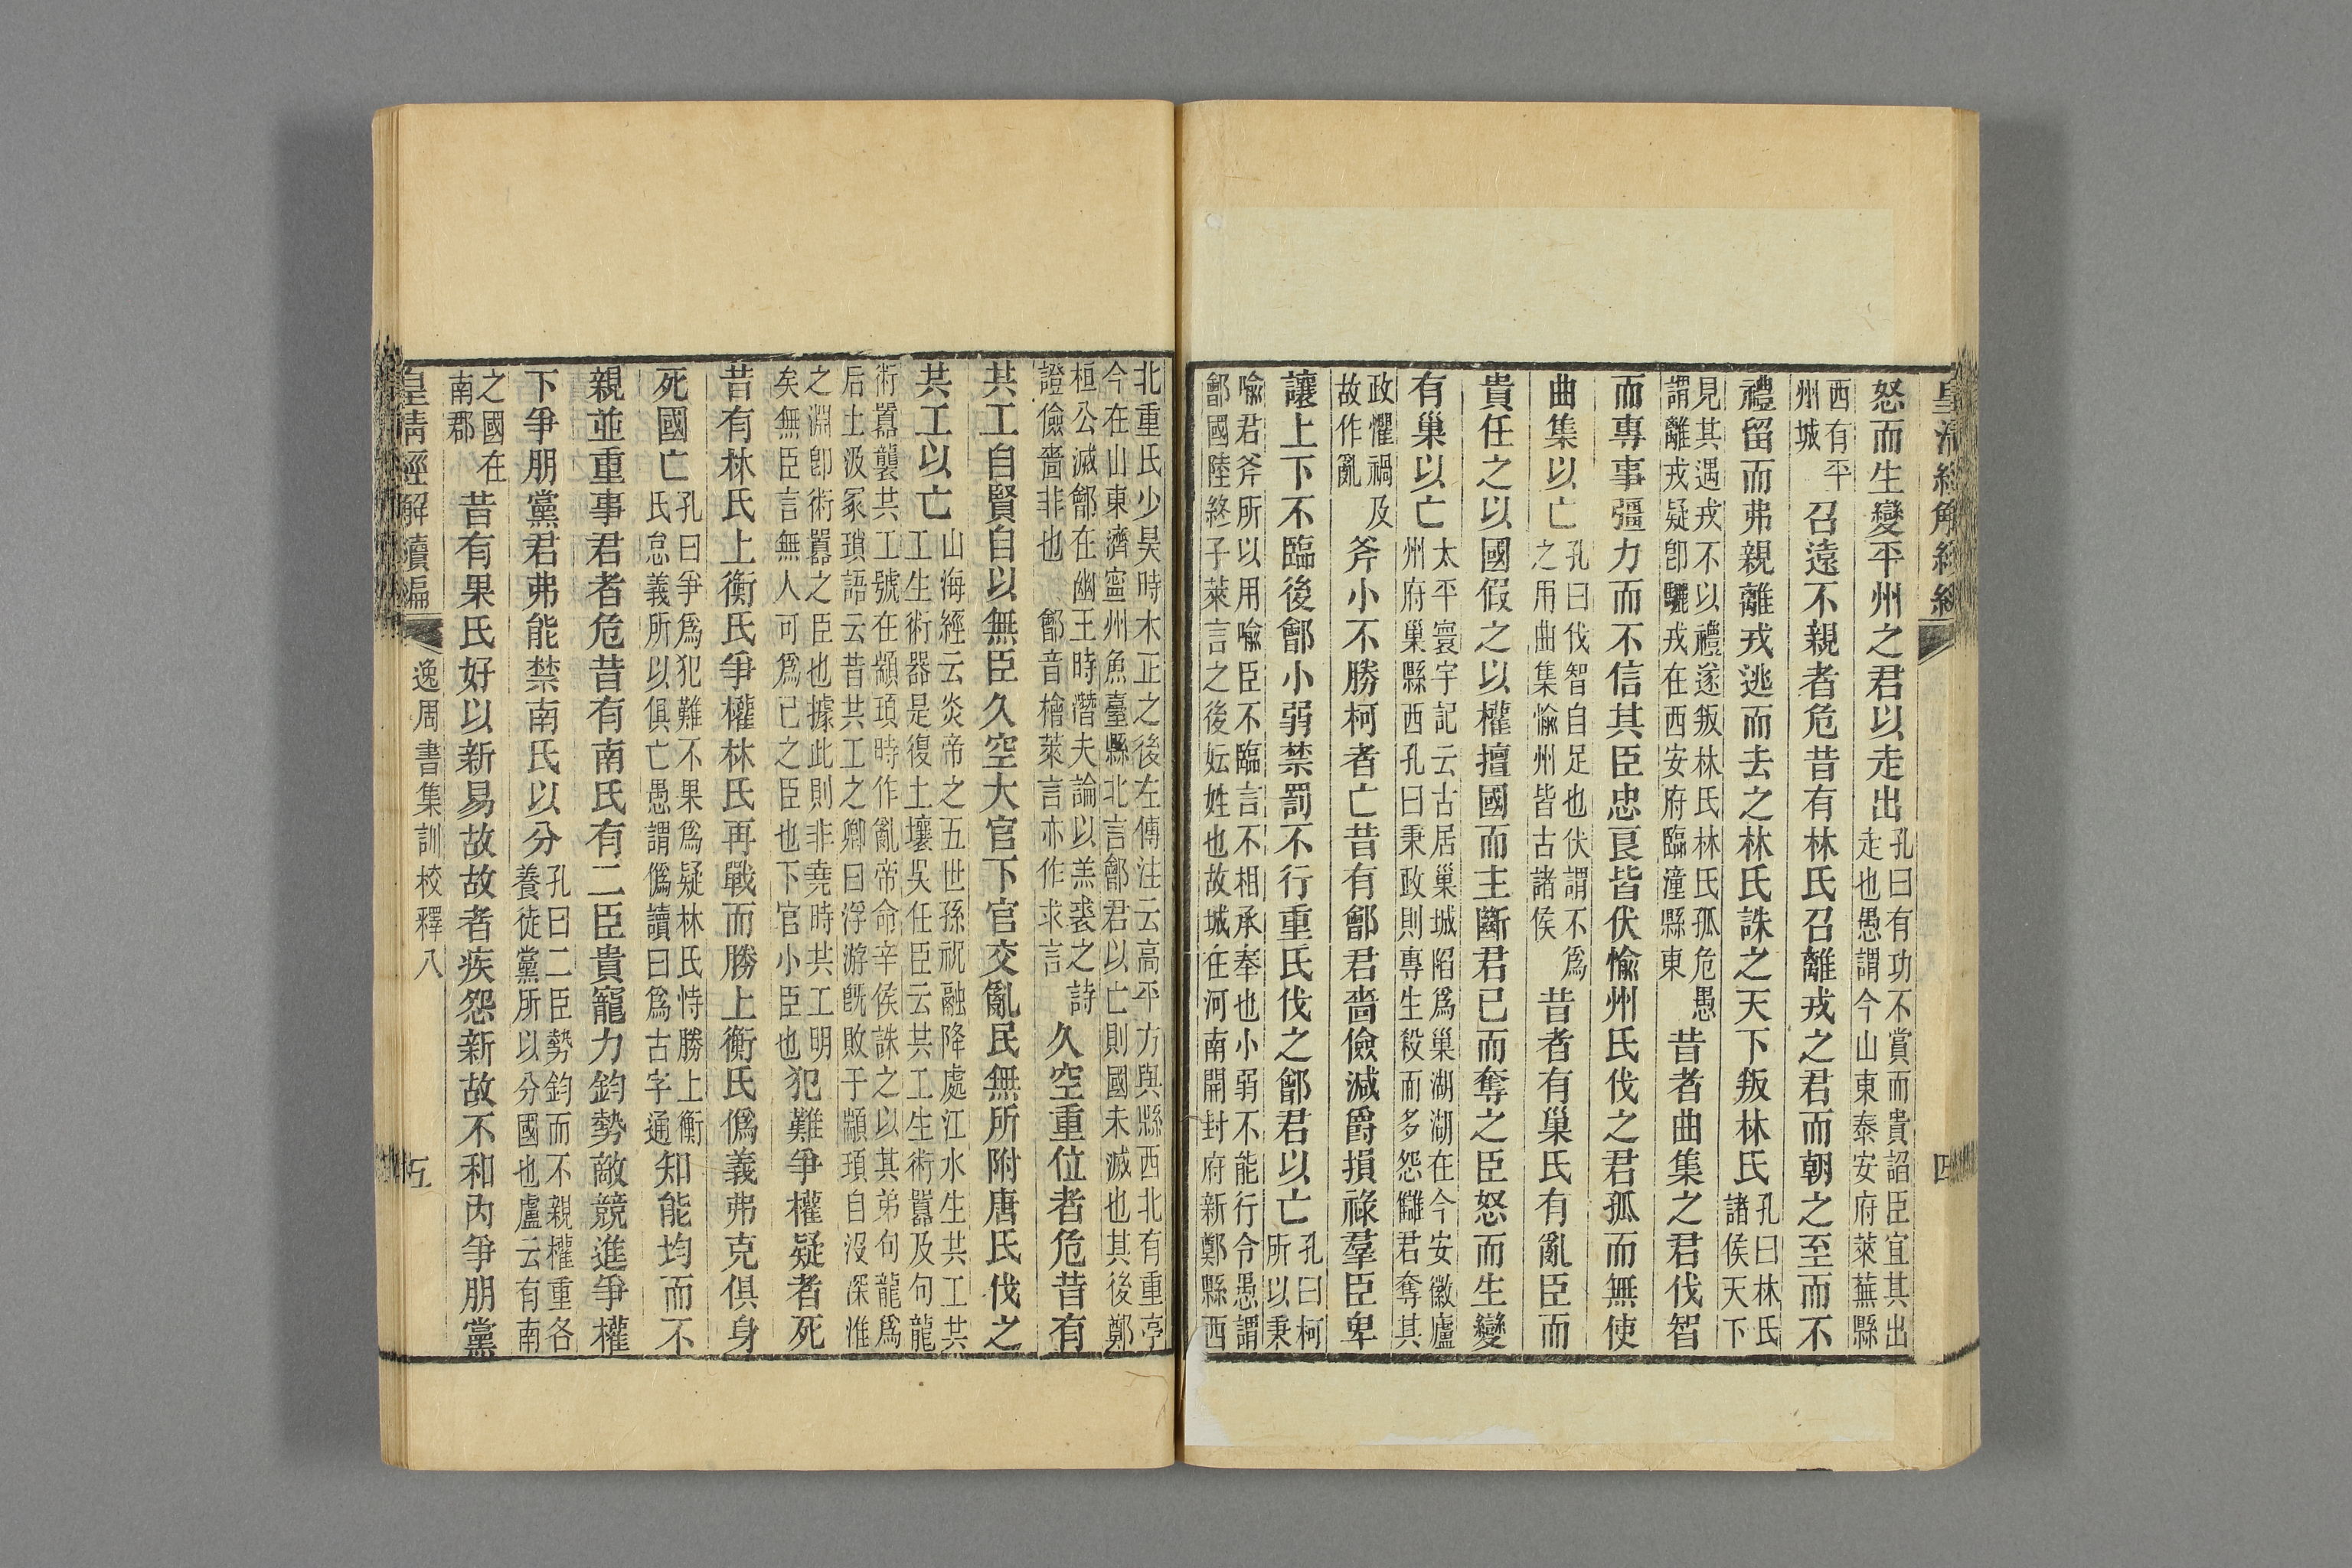 怒而生變平州之君以走出孔曰有功不賞而貴諂臣宜其出走也愚謂今山東泰安府萊蕪縣
西有平州城召遠不親者危昔有林氏召離戎之君而朝之至而不
禮留而弗親離戎逃而去之林氏誅之天下叛林氏孔曰林氏諸侯天下
見其遇戎不以禮遂叛林氏林氏孤危愚謂離戎疑卽驪戎在西安府臨潼縣東昔者曲集之君伐智
而專事彊力而不信其臣忠良皆伏愉州氏伐之君孤而無使
曲集以亡孔曰伐智自足也伏謂不爲之用曲集愉州皆古諸侯昔者有巢氏有亂臣而
貴任之以國假之以權擅國而主斷君已而奪之臣怒而生變
有巢以亡太平寰宇記云古居巢城陷爲巢湖湖在今安徽廬州府巢縣西孔曰秉政則專生殺而多怨讎君奪其
政懼禍及故作亂斧小不勝柯者亡昔有鄶君嗇儉減爵損祿羣臣卑
讓上下不臨後鄶小弱禁罰不行重氏伐之鄶君以亡孔曰柯所以秉
喩君斧所以用喩臣不臨言不相承奉也小弱不能行令愚謂鄶國陸終子萊言之後妘姓也故城在河南開封府新鄭縣西
北重氏少昊時木正之後左傳注云高平方與縣西北有重亭今在山東濟寧州魚臺縣北言鄶君以亡則國未滅也其後鄭
桓公滅鄶在幽王時潛夫論以羔裘之詩證儉嗇非也　鄶音檜萊言亦作求言久空重位者危昔有
共工自賢自以無臣久空大官下官交亂民無所附唐氏伐之
共工以亡山海經云炎帝之五世孫祝融降處江水生共工共工生術器是復土壤吳任臣云共工生術囂及句龍
術囂襲共工號在顓頊時作亂帝命辛侯誅之以其弟句龍爲后土汲冢瑣語云昔共工之卿曰浮游旣敗于顓頊自沒深淮
之淵卽術囂之臣也據此則非堯時共工明矣無臣言無人可爲已之臣也下官小臣也犯難爭權疑者死
昔有林氏上衡氏爭權林氏再戰而勝上衡氏僞義弗克俱身
死國亡孔曰爭爲犯難不果爲疑林氏恃勝上衡氏怠義所以俱亡愚謂僞讀曰爲古字通知能均而不
親並重事君者危昔有南氏有二臣貴寵力鈞勢敵競進爭權
下爭朋黨君弗能禁南氏以分孔曰二臣勢鈞而不親權重各養徒黨所以分國也盧云有南
之國在南郡昔有果氏好以新易故故者疾怨新故不和內爭朋黨
皇淸經解續編　逸周書集訓校釋八　五